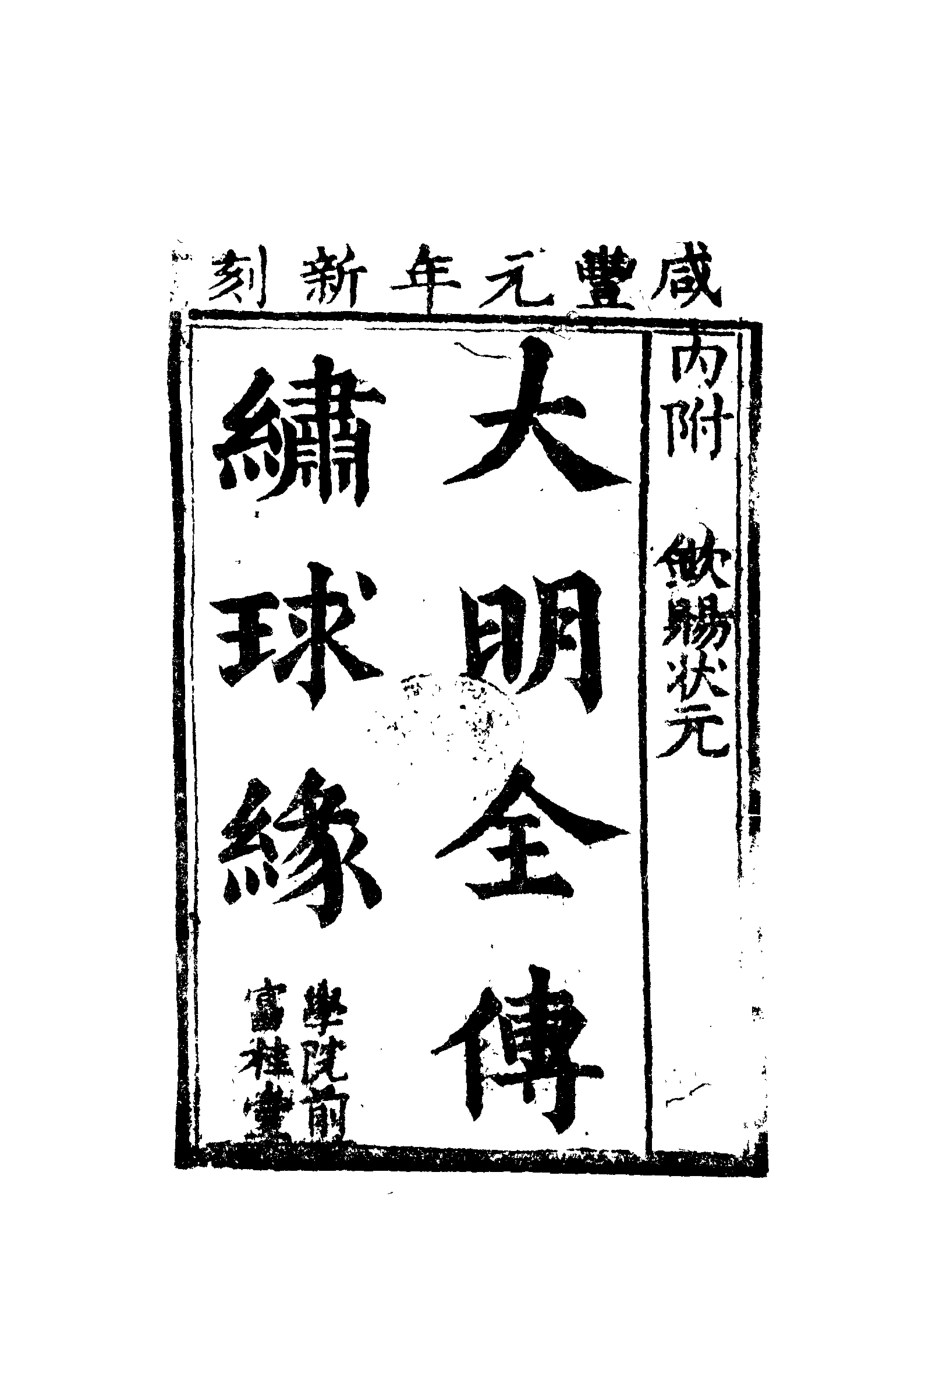 咸豐元年新刻
內附 欽賜狀元
大明全傳
繡球緣
學院前
富桂堂